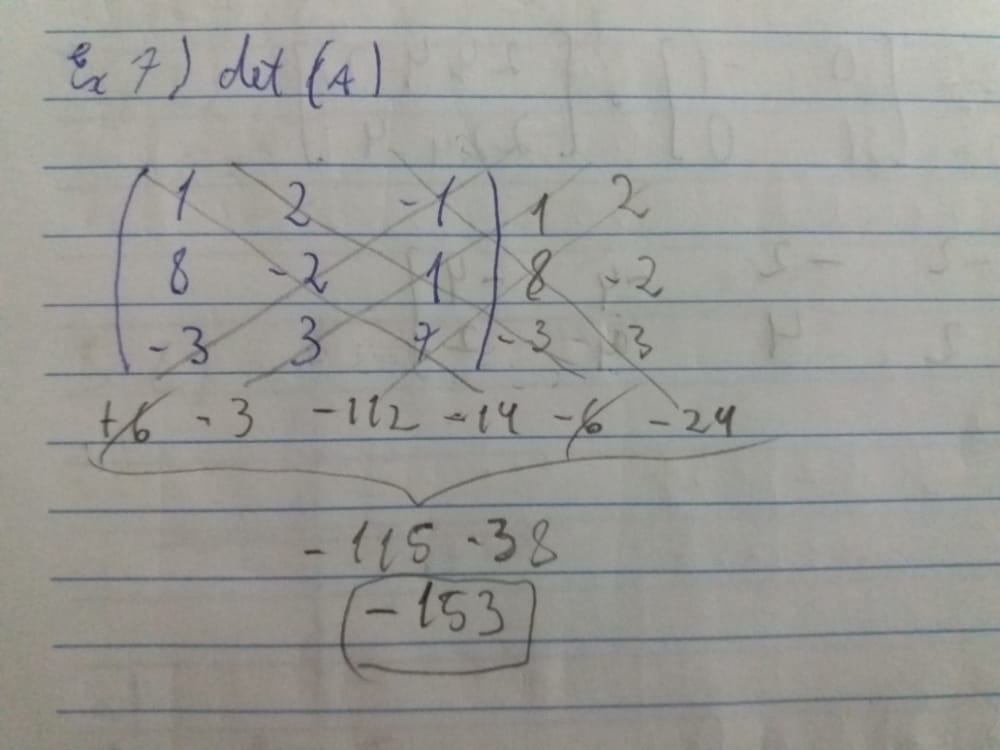 Ex 7) det (A)
( 1 2 -1 ) 1 2
( 8 -2 1 ) 8 -2
( -3 3 7 ) -3 3
+6 -3 -112 -14 -6 -24
-115 -38
-153